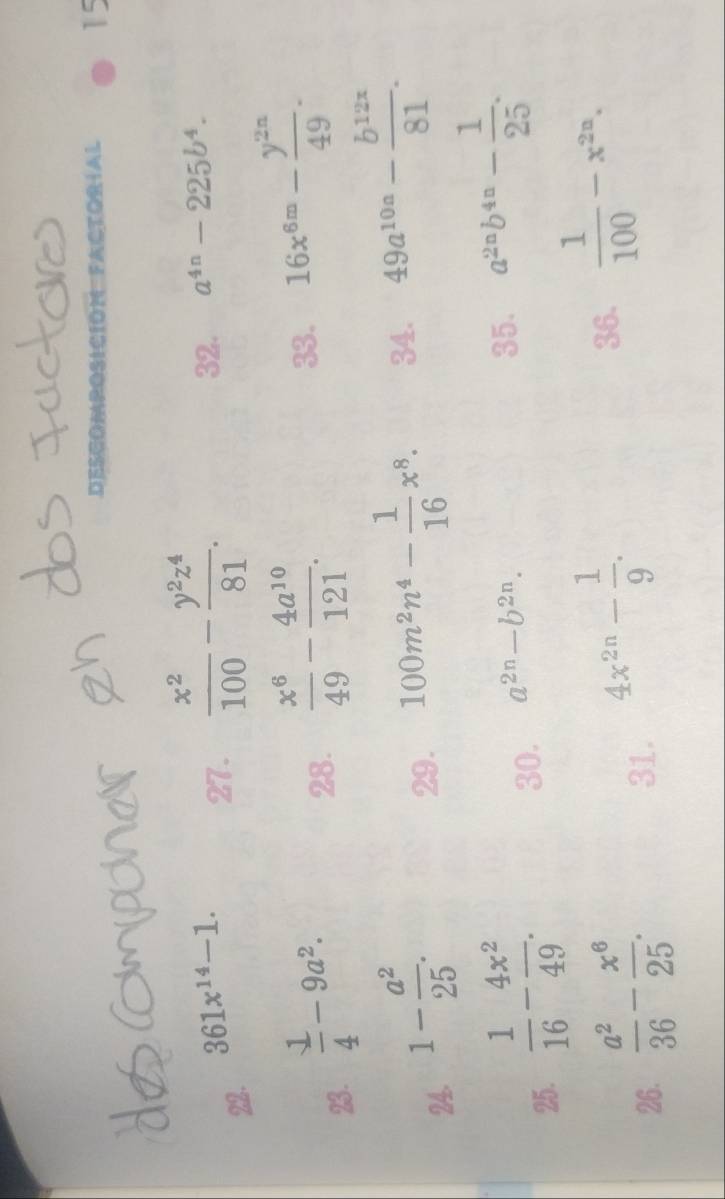 descomponer en dos factores
DESCOMPOSICION FACTORIAL ● 15
22. 361x¹⁴−1.
23. 1/4 − 9a².
24. 1 − a²/25.
25. 1/16 − 4x²/49.
26. a²/36 − x⁶/25.
27. x²/100 − y²z⁴/81.
28. x⁶/49 − 4a¹⁰/121.
29. 100m²n⁴ − 1/16 x⁸.
30. a²ⁿ−b²ⁿ.
31. 4x²ⁿ − 1/9.
32. a⁴ⁿ − 225b⁴.
33. 16x⁶ᵐ − y²ⁿ/49.
34. 49a¹⁰ⁿ − b¹²ˣ/81.
35. a²ⁿb⁴ⁿ − 1/25.
36. 1/100 − x²ⁿ.